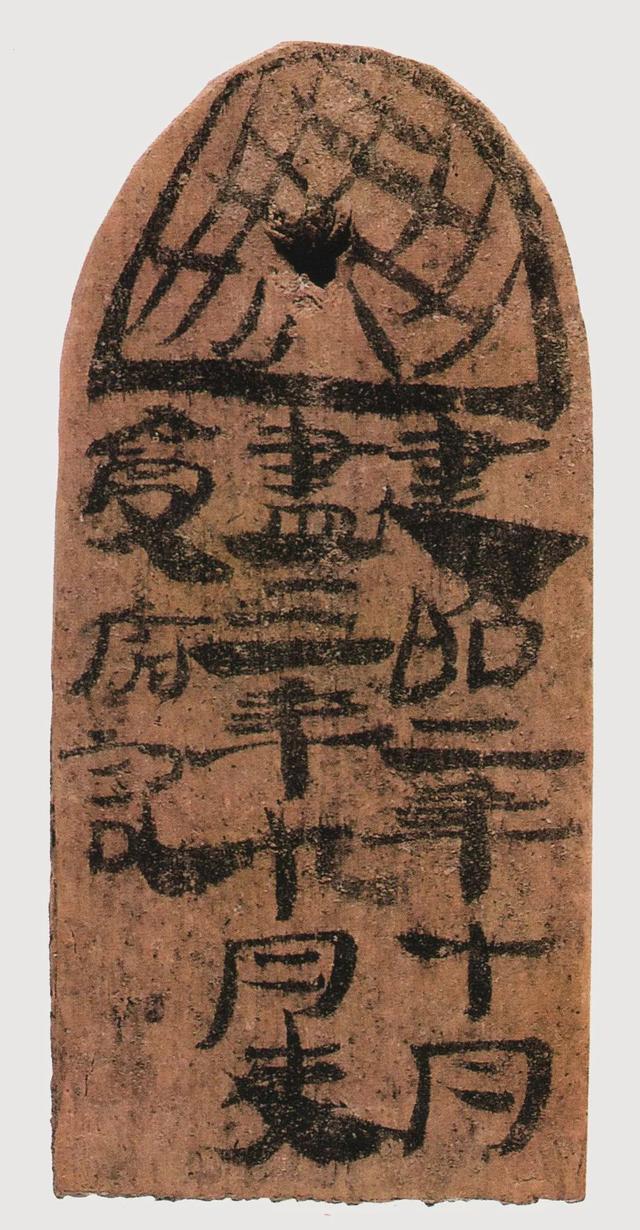 建昭二年十月
盡三年九月吏
受府記